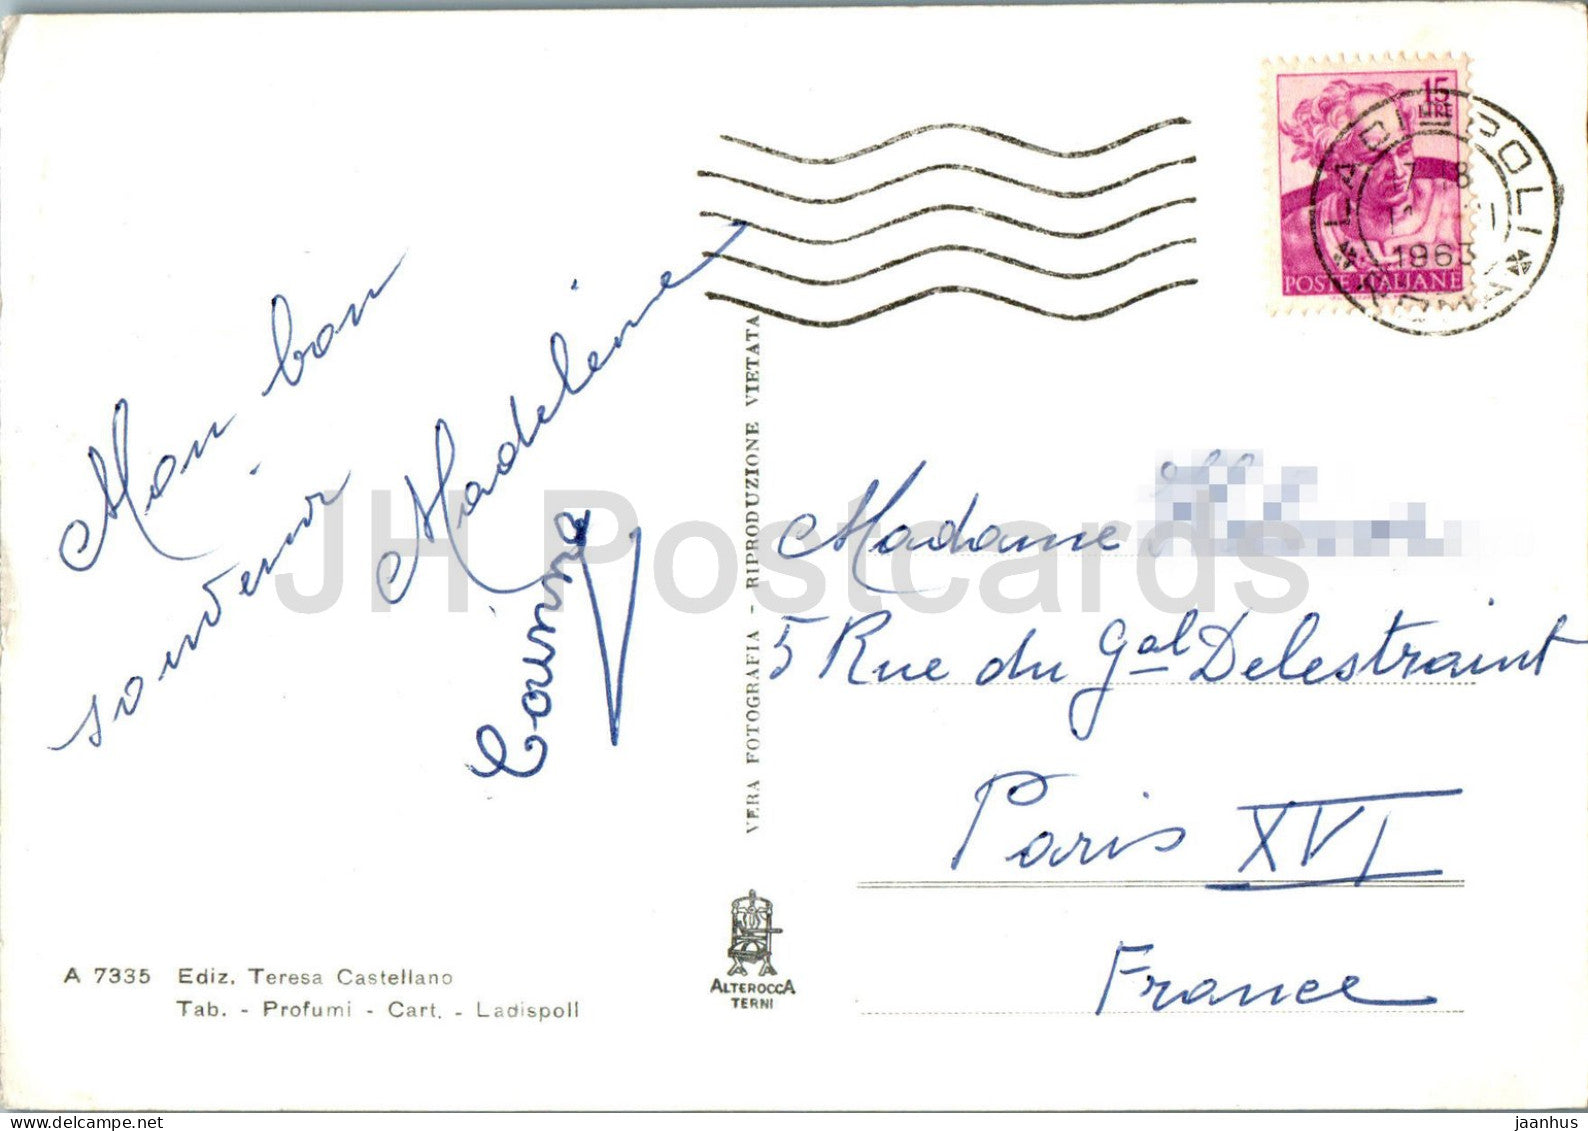 15
LIRE
POSTE ITALIANE
LADISPOLI
ROMA
1963
Mon bon
souvenir
Madeleine
VERA FOTOGRAFIA - RIPRODUZIONE VIETATA
Madame
5 Rue du Gal Delestraint
Paris XVI
France
A 7335 Ediz. Teresa Castellano
Tab. - Profumi - Cart. - Ladispoli
ALTEROCCA
TERNI
JH Postcards
jaanhus / delcampe.net